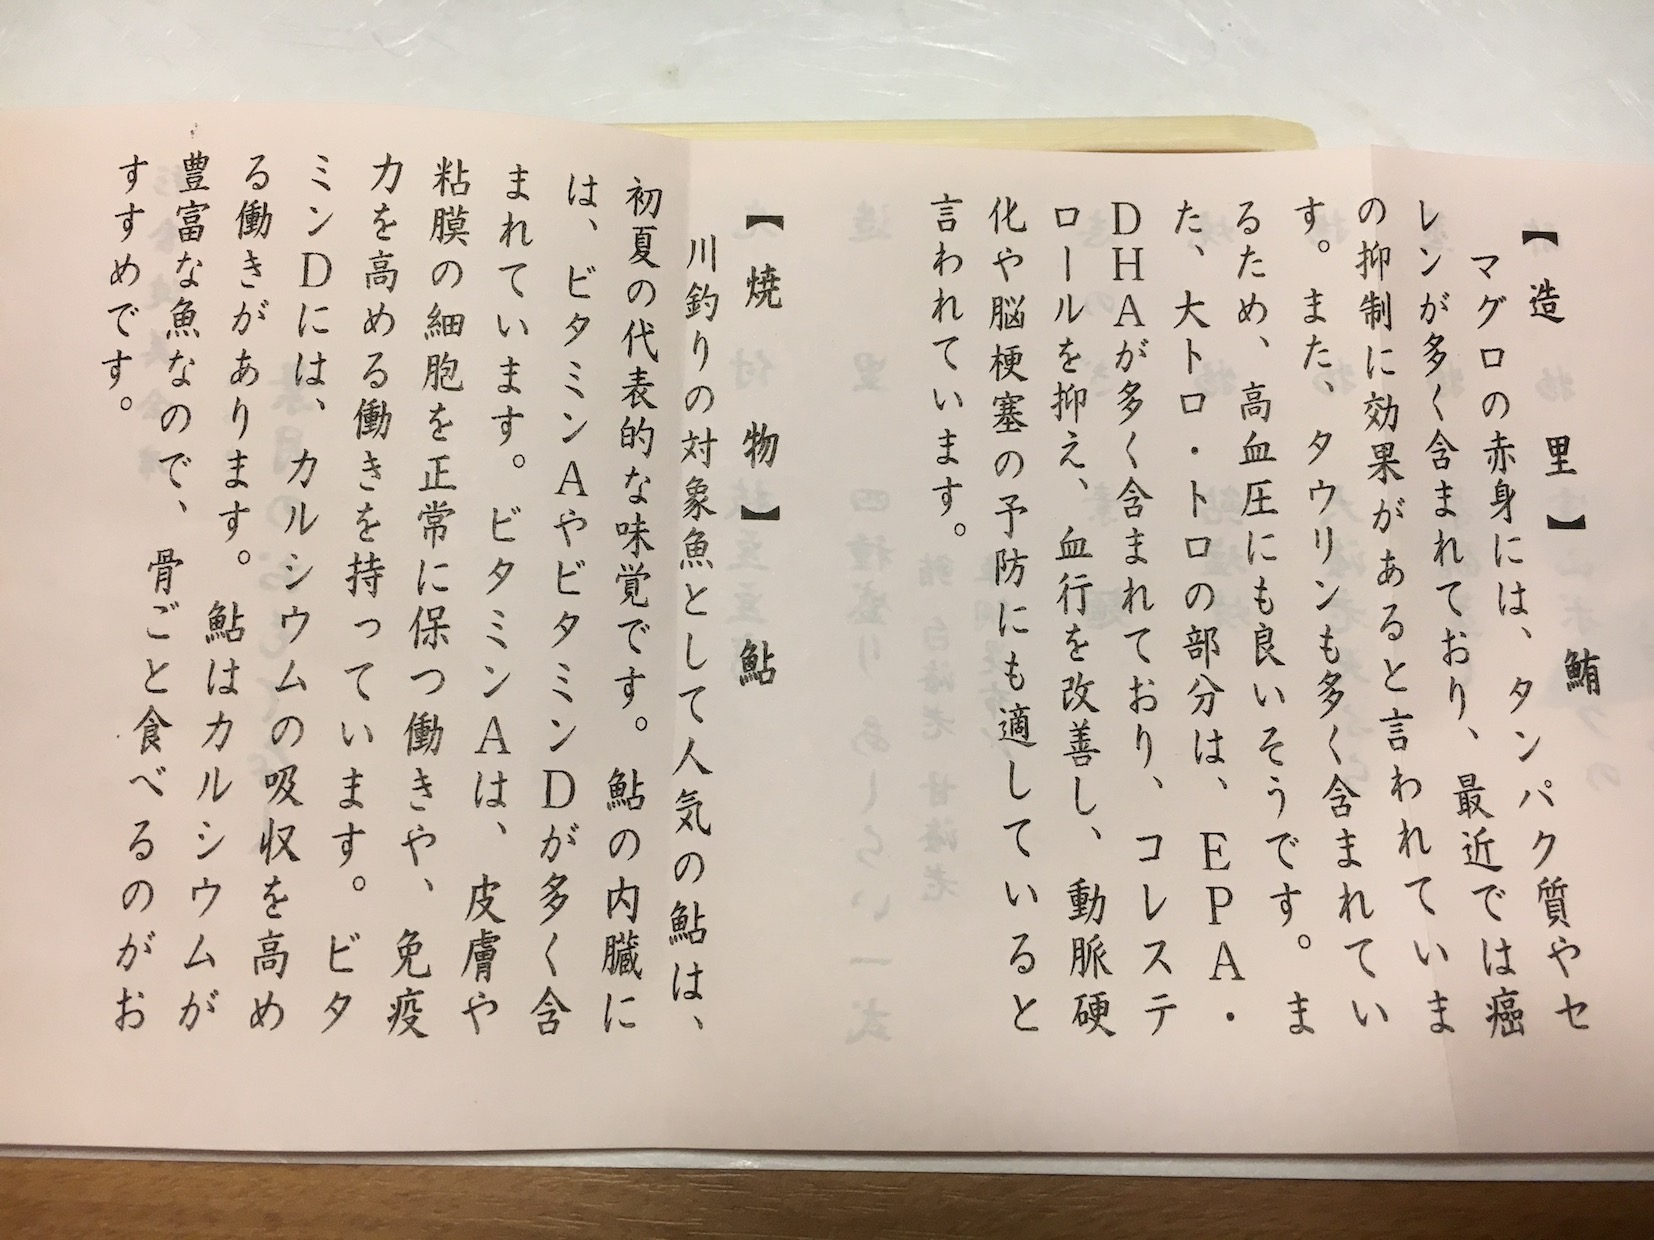 【造里】 鮪
マグロの赤身には、タンパク質やセ
レンが多く含まれており、最近では癌
の抑制に効果があると言われていま
す。また、タウリンも多く含まれてい
るため、高血圧にも良いそうです。ま
た、大トロ・トロの部分は、EPA・
DHAが多く含まれており、コレステ
ロールを抑え、血行を改善し、動脈硬
化や脳梗塞の予防にも適していると
言われています。
【焼物】 鮎
川釣りの対象魚として人気の鮎は、
初夏の代表的な味覚です。鮎の内臓に
は、ビタミンAやビタミンDが多く含
まれています。ビタミンAは、皮膚や
粘膜の細胞を正常に保つ働きや、免疫
力を高める働きを持っています。ビタ
ミンDには、カルシウムの吸収を高め
る働きがあります。鮎はカルシウムが
豊富な魚なので、骨ごと食べるのがお
すすめです。